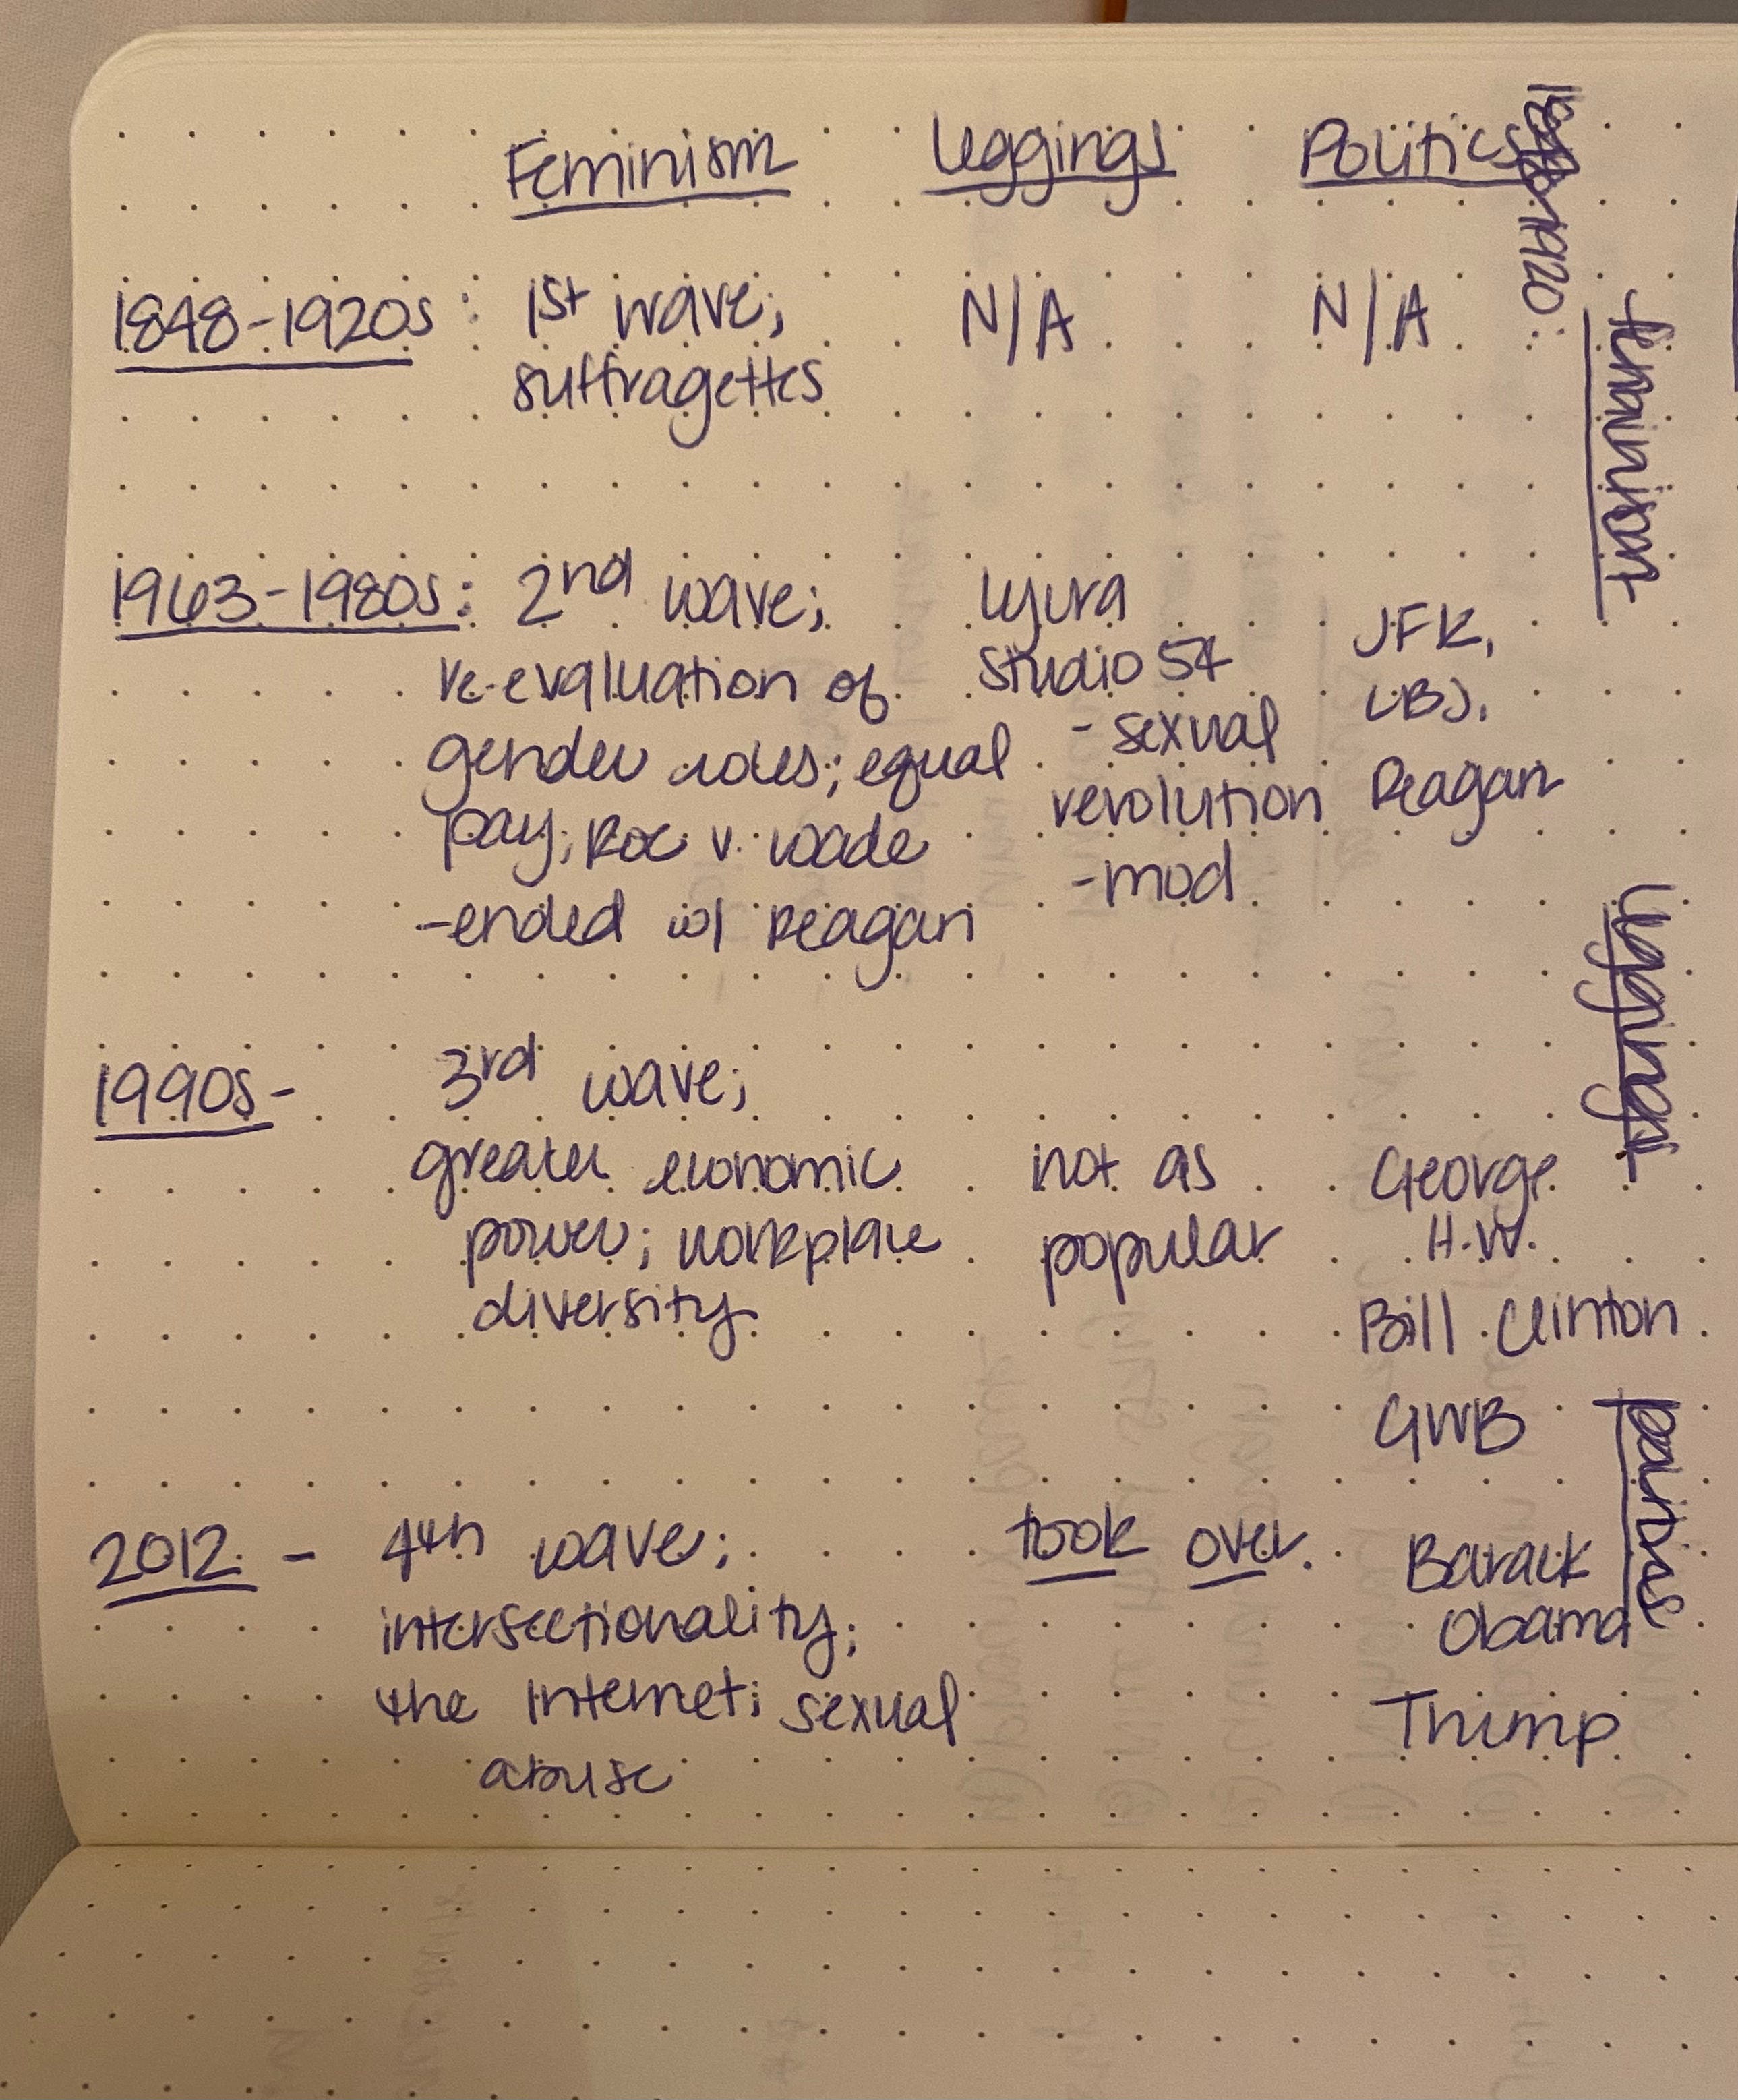 Feminism Leggings Politics
1848-1920s: 1st wave; N/A N/A
suffragettes
1963-1980s: 2nd wave; Lycra
re-evaluation of Studio 54 JFK,
gender roles; equal - sexual LBJ,
pay; Roe v. Wade revolution Reagan
-ended w/ Reagan -mod
1990s- 3rd wave;
greater economic not as George
power; workplace popular H.W.
diversity Bill Clinton
GWB
2012 - 4th wave; took over. Barack
intersectionality; Obama
the Internet; sexual Trump
abuse
1920:
feminism
Leggings